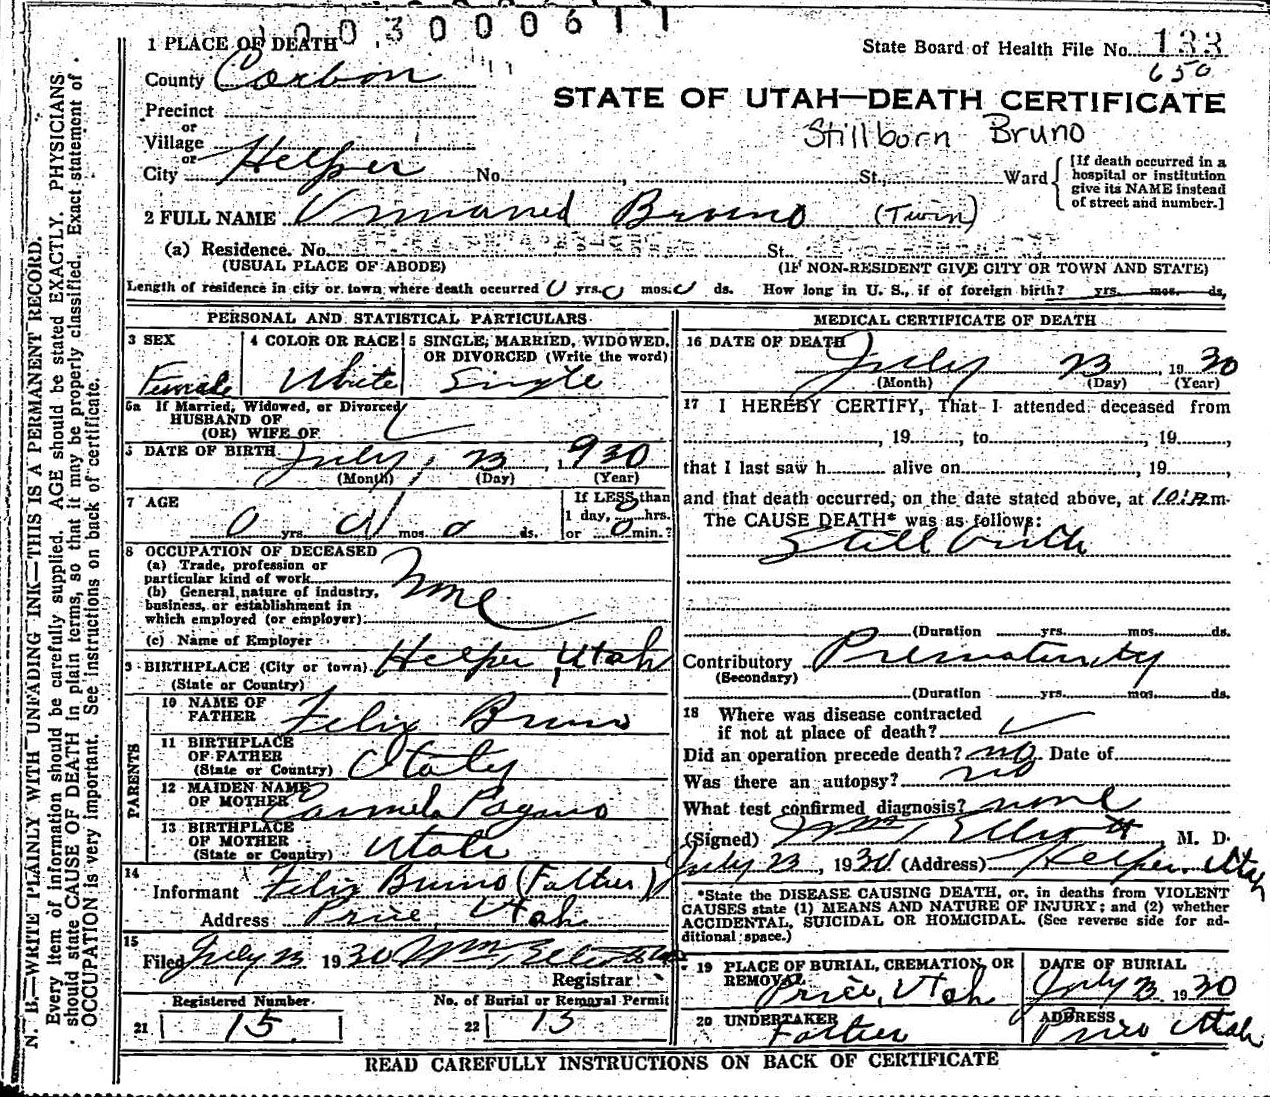 1003000611
1 PLACE OF DEATH
State Board of Health File No. 133
650
County Carbon
STATE OF UTAH—DEATH CERTIFICATE
Stillborn Bruno
Precinct
or
Village
or
City Helper No. , St., Ward
[If death occurred in a
hospital or institution
give its NAME instead
of street and number.]
2 FULL NAME Unnamed Bruno (Twin)
(a) Residence. No. St.
(USUAL PLACE OF ABODE) (IF NON-RESIDENT GIVE CITY OR TOWN AND STATE)
Length of residence in city or town where death occurred 0 yrs. 0 mos. 0 ds. How long in U. S., if of foreign birth? yrs. mos. ds.
PERSONAL AND STATISTICAL PARTICULARS
3 SEX
Female
4 COLOR OR RACE
White
5 SINGLE, MARRIED, WIDOWED,
OR DIVORCED (Write the word)
Single
5a If Married, Widowed, or Divorced
HUSBAND OF
(OR) WIFE OF
6 DATE OF BIRTH July, 23, 1930
(Month) (Day) (Year)
7 AGE
0 yrs. 0 mos. 0 ds.
If LESS than
1 day, 0 hrs.
or 0 min.?
8 OCCUPATION OF DECEASED
(a) Trade, profession or
particular kind of work
None
(b) General nature of industry,
business, or establishment in
which employed (or employer)
(c) Name of Employer
9 BIRTHPLACE (City or town) Helper, Utah
(State or Country)
PARENTS
10 NAME OF
FATHER Felix Bruno
11 BIRTHPLACE
OF FATHER
(State or Country) Italy
12 MAIDEN NAME
OF MOTHER Carmela Pagano
13 BIRTHPLACE
OF MOTHER
(State or Country) Utah
14
Informant Felix Bruno (Father)
Address Price Utah
15
Filed July 23 1930 Wm Elliott
Registrar
Registered Number
21 15
No. of Burial or Removal Permit
22 13
MEDICAL CERTIFICATE OF DEATH
16 DATE OF DEATH
July 23 1930
(Month) (Day) (Year)
17 I HEREBY CERTIFY, That I attended deceased from
, 19 , to , 19 ,
that I last saw h alive on , 19 ,
and that death occurred, on the date stated above, at 10:A m.
The CAUSE DEATH* was as follows:
Still birth
(Duration yrs. mos. ds.
Contributory Prematurity
(Secondary)
(Duration yrs. mos. ds.
18 Where was disease contracted
if not at place of death?
Did an operation precede death? no Date of
Was there an autopsy? no
What test confirmed diagnosis? none
(Signed) Wm Elliott M. D.
July 23, 1930 (Address) Helper, Utah
*State the DISEASE CAUSING DEATH, or, in deaths from VIOLENT
CAUSES state (1) MEANS AND NATURE OF INJURY; and (2) whether
ACCIDENTAL, SUICIDAL OR HOMICIDAL. (See reverse side for ad-
ditional space.)
19 PLACE OF BURIAL, CREMATION, OR
REMOVAL
Price, Utah
DATE OF BURIAL
July 23 1930
20 UNDERTAKER
Father
ADDRESS
Price Utah
READ CAREFULLY INSTRUCTIONS ON BACK OF CERTIFICATE
N. B.—WRITE PLAINLY WITH UNFADING INK—THIS IS A PERMANENT RECORD.
Every item of information should be carefully supplied. AGE should be stated EXACTLY. PHYSICIANS
should state CAUSE OF DEATH in plain terms, so that it may be properly classified. Exact statement of
OCCUPATION is very important. See instructions on back of certificate.